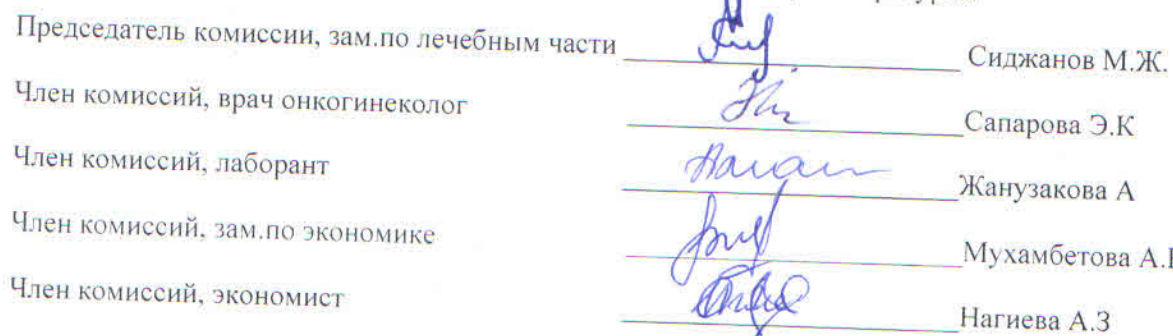 Председатель комиссии, зам.по лечебным части Сиджанов М.Ж.
Член комиссий, врач онкогинеколог Сапарова Э.К
Член комиссий, лаборант Жанузакова А
Член комиссий, зам.по экономике Мухамбетова А.
Член комиссий, экономист Нагиева А.З